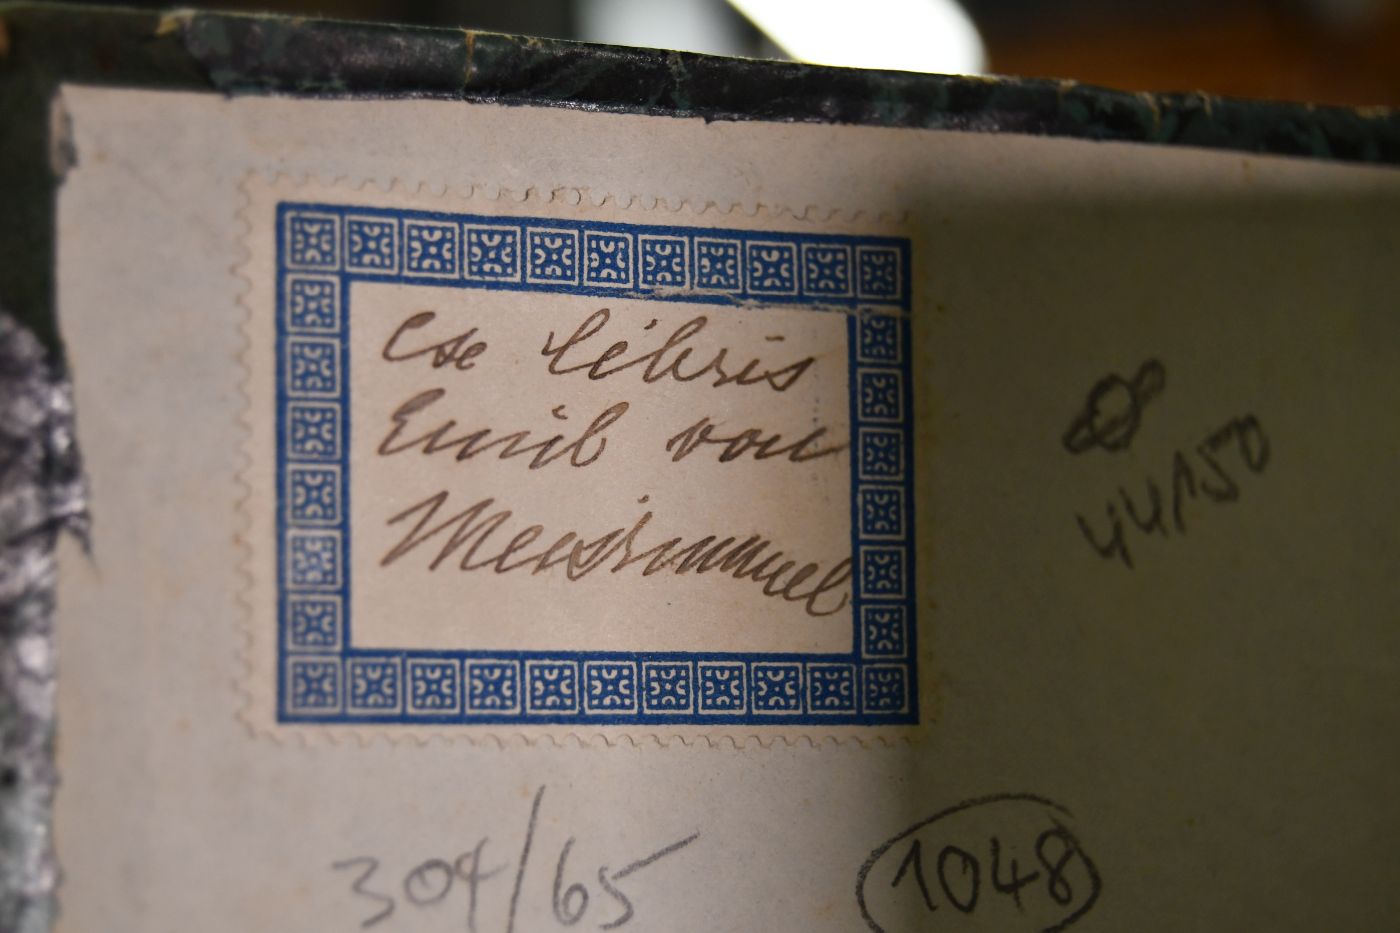 Ex libris
Emil von
Meissimmel
44150
304/65
1048